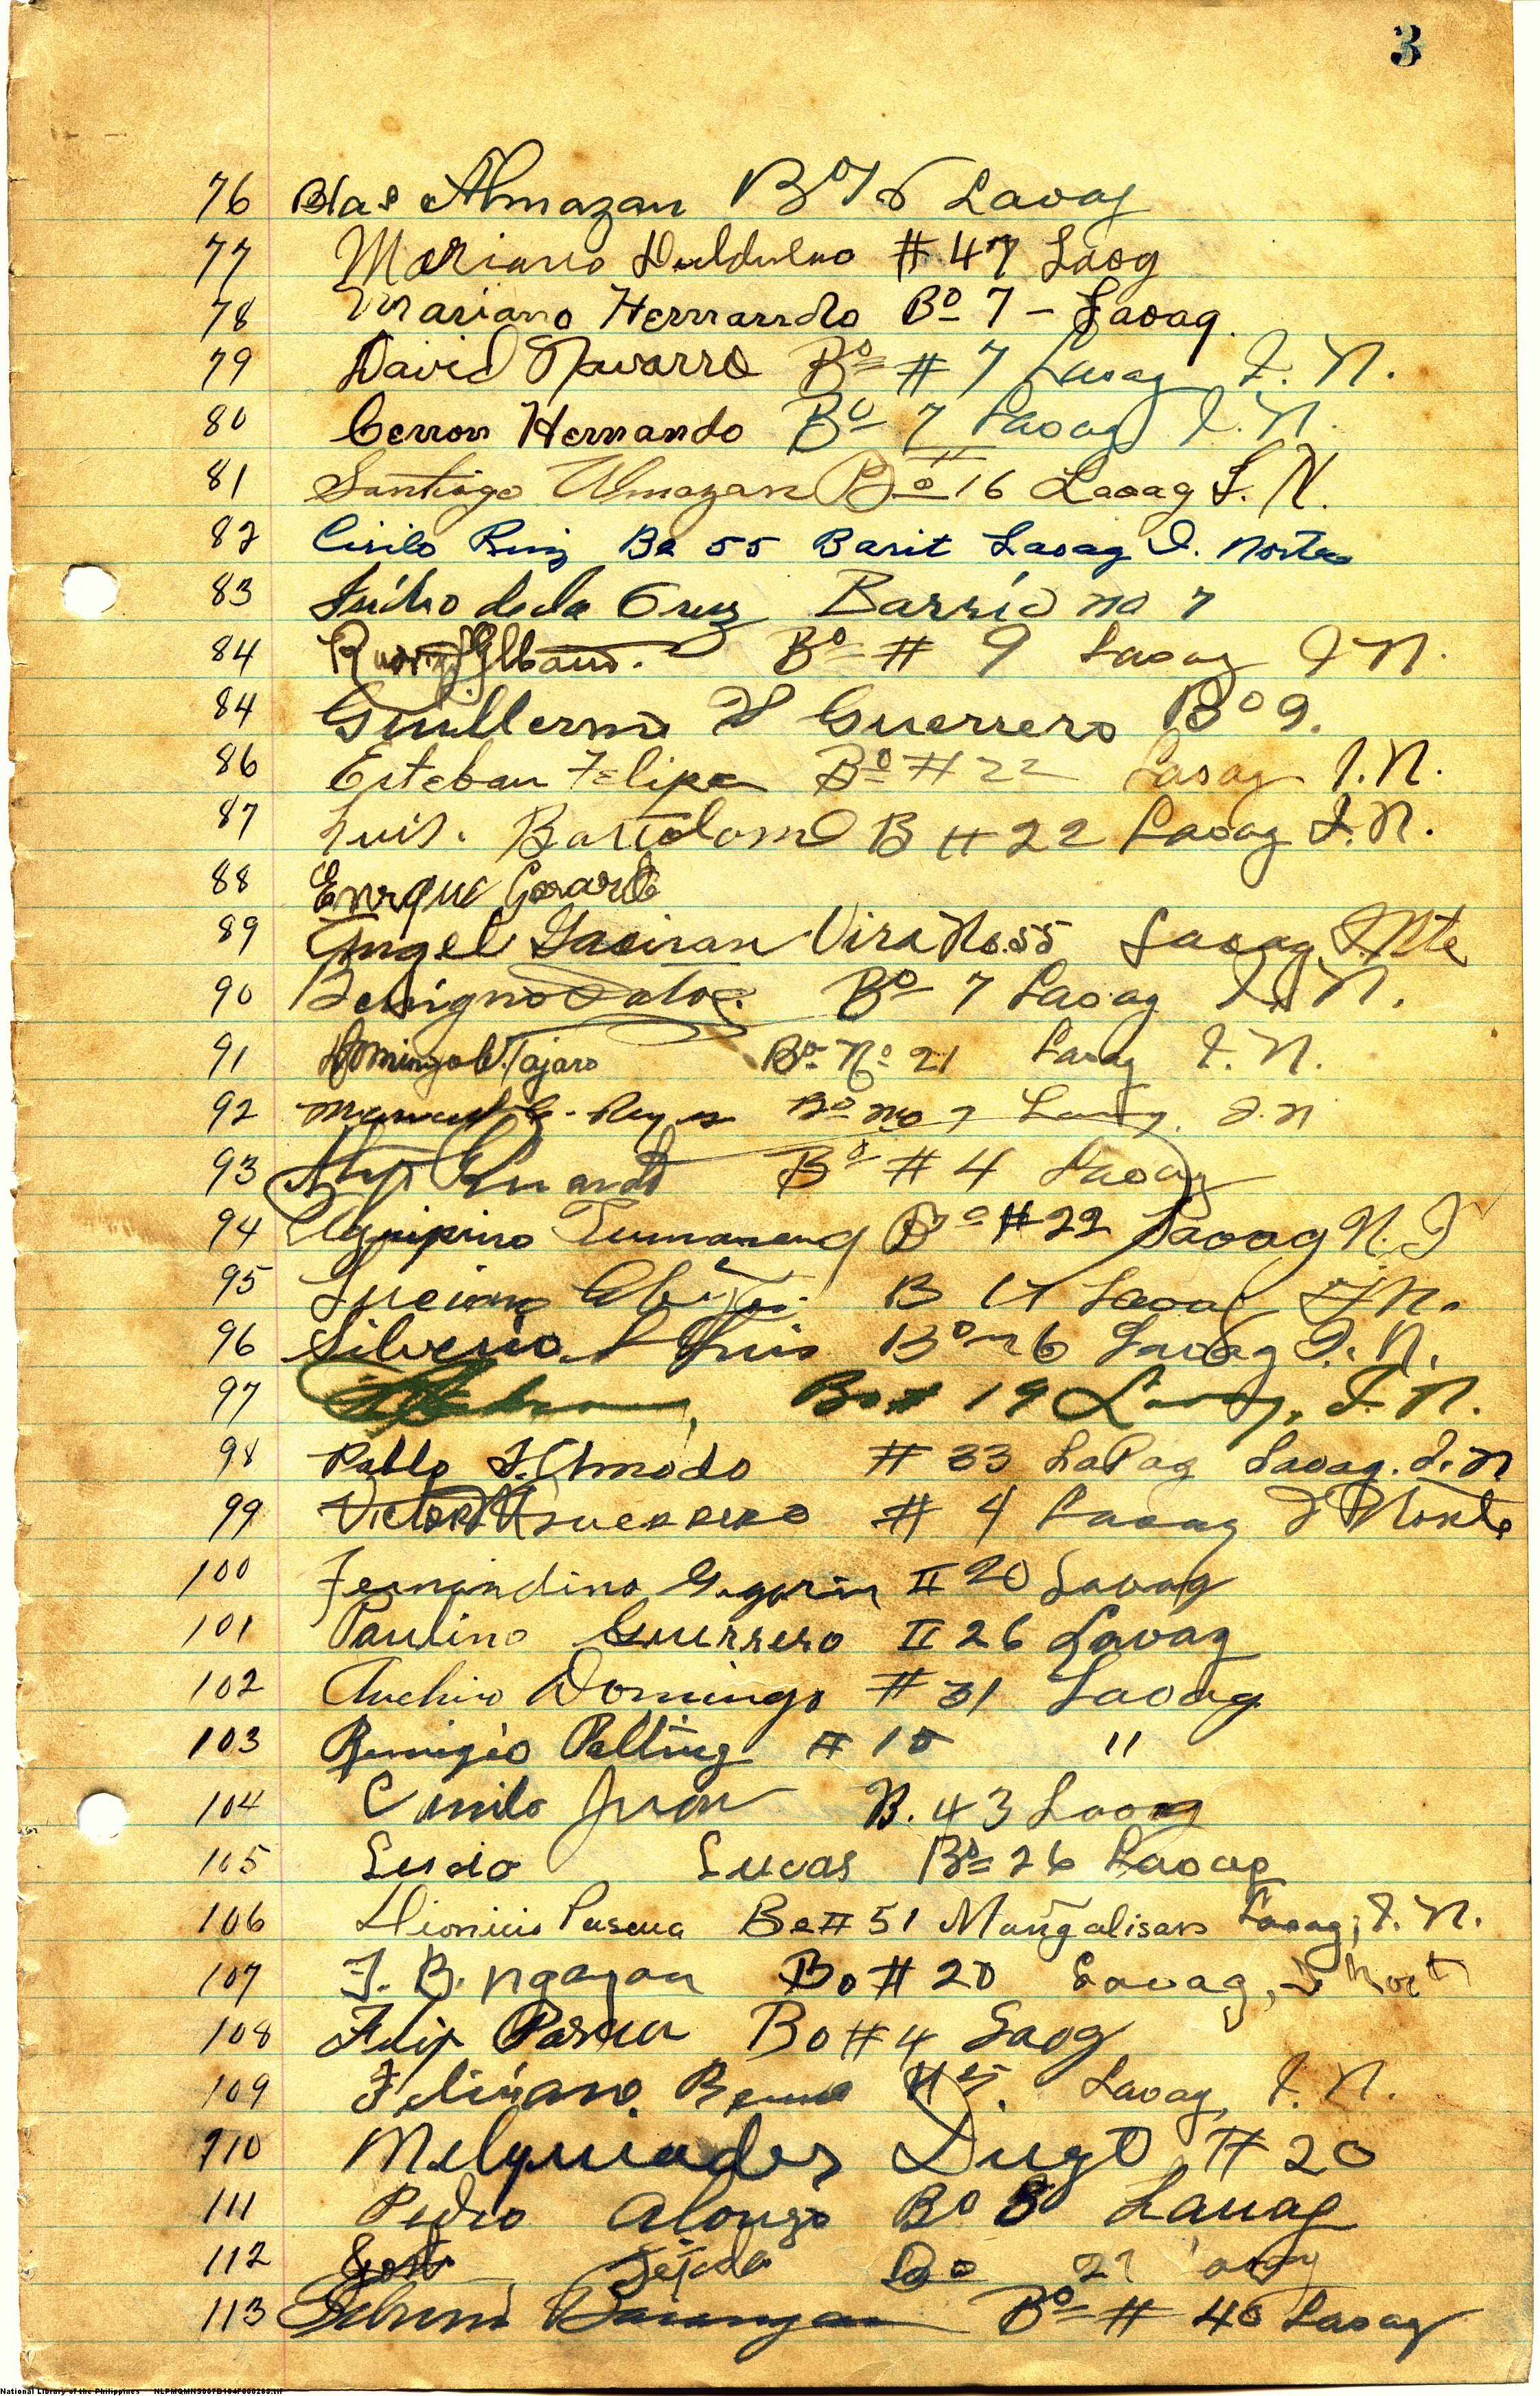 3
76 Blas Almazan Bo 16 Laoag
77 Mariano Duldulao # 47 Laog
78 Mariano Hernando Bo 7 - Laoag.
79 David Navarro Bo # 7 Laoag I. N.
80 Cerron Hernando Bo 7 Laoag I. N.
81 Santiago Almazan Bo 16 Laoag I. N.
82 Cirilo Ruiz Bo 55 Barit Laoag I. Norte
83 Isidro de la Cruz Barrio no 7
84 Bo # 9 Laoag I N.
84 Guillermo Guerrero Bo 9.
86 Esteban Felipe Bo # 22 Laoag I. N.
87 Luis. Bartolome B # 22 Laoag I. N.
88 Enrque
89 Angel Vira No. 55 Laoag I. Nte
90 Benigno Bo 7 Laoag I. N.
91 Domingo Tajaro Bo No 21 Laoag I. N.
92 Manuel Reyes Bo no 7 Laoag. I. N
93 Bo # 4 Laoag
94 Agripino Tumaneng Bo # 22 Laoag N. I
95 Luciano B 17 Laoag I N.
96 Silverio Luis Bo 6 Laoag I. N.
97 Bo # 19 Laoag, I. N.
98 Pablo # 33 LaPag Laoag. I. N
99 Victor Guerrero # 4 Laoag I Norte
100 Fernandino Gagarin # 20 Laoag
101 Paulino Guerrero # 26 Laoag
102 Domingo # 31 Laoag
103 Remigio # 15 "
104 Camilo Juan B. 43 Laoag
105 Lucio Lucas Bo 26 Laoag
106 Dionicio Pascua Bo # 51 Mañgalisan Laoag, I. N.
107 J. B. Ngayan Bo # 20 Laoag, I Nort
108 Felip Pascua Bo # 4 Laog
109 Feliciano Laoag, I. N.
110 Melquiades Dugt # 20
111 Pedro Alonzo Bo 8 Lauag
112 Tejada Bo
113 Bo # 46 Laoag
National Library of the Philippines